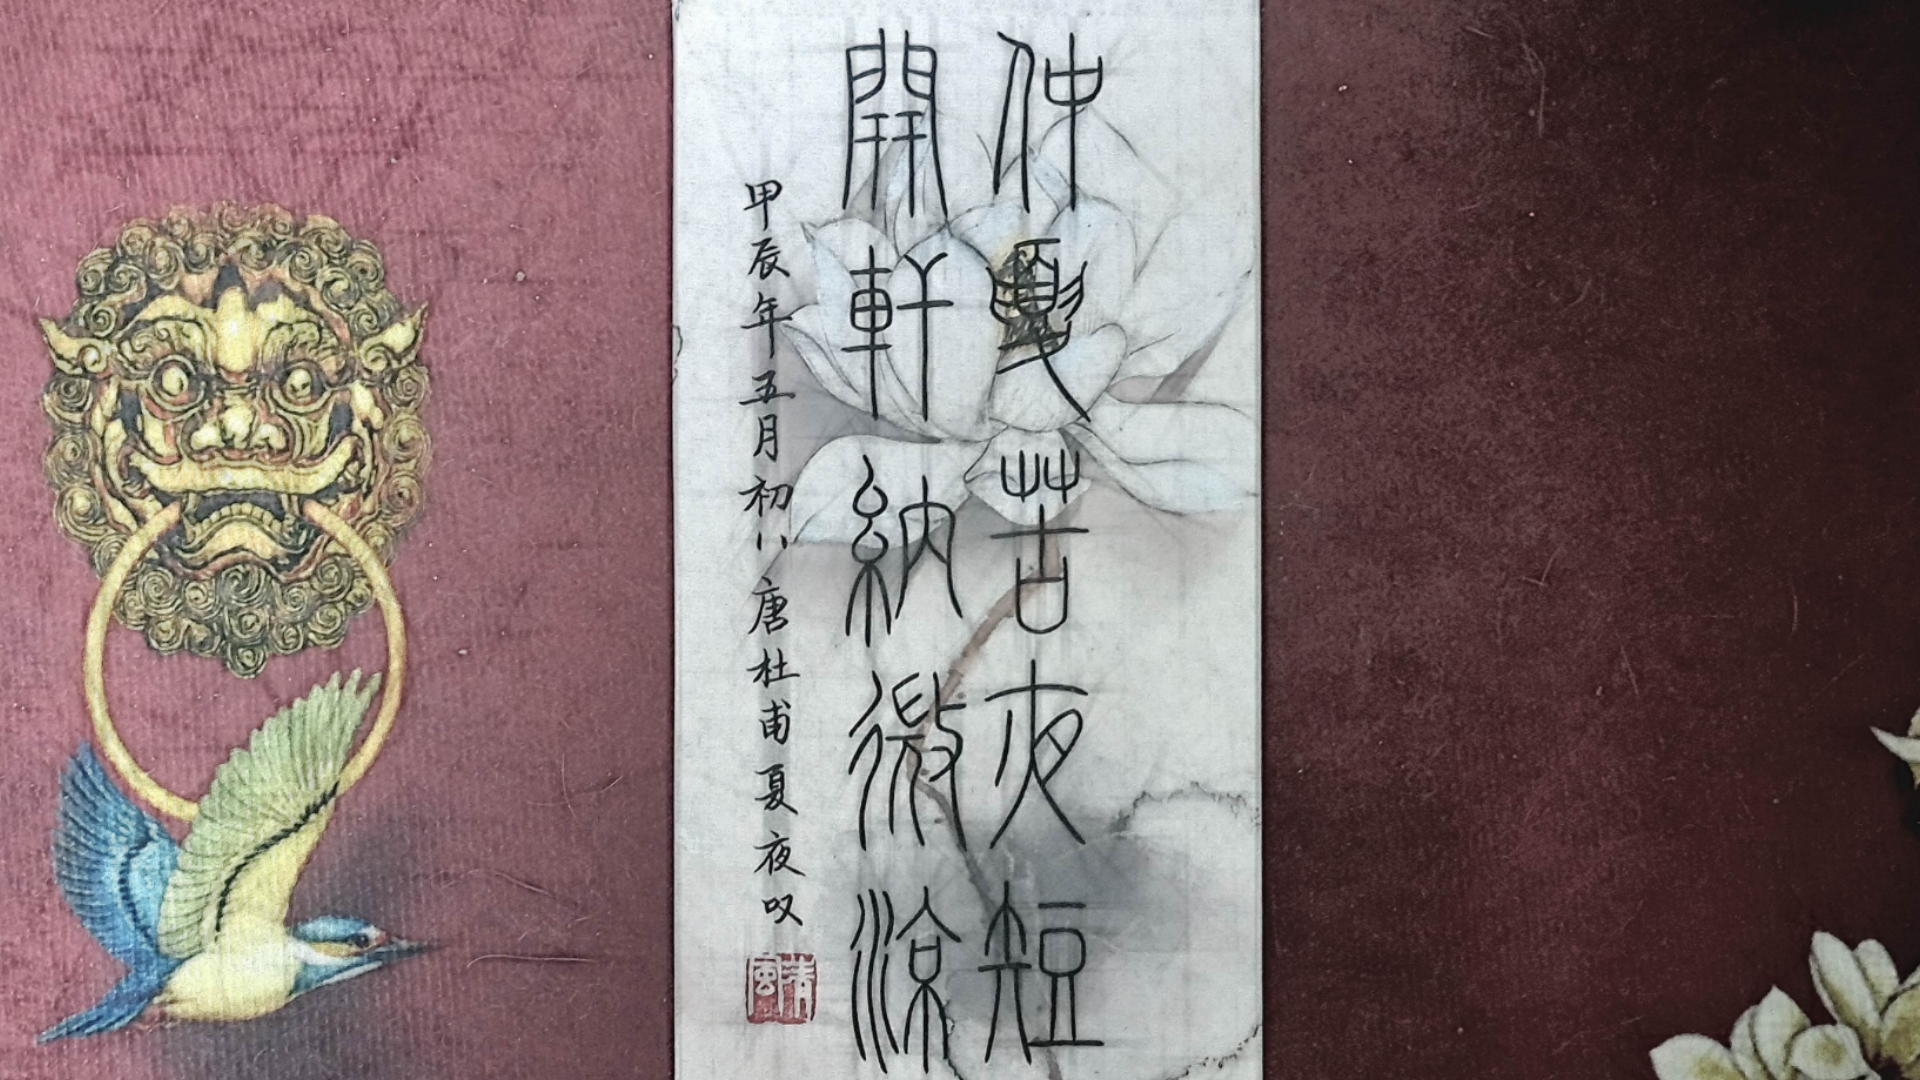 仲夏苦夜短
開軒納微涼
甲辰年五月初八唐杜甫夏夜叹
清風